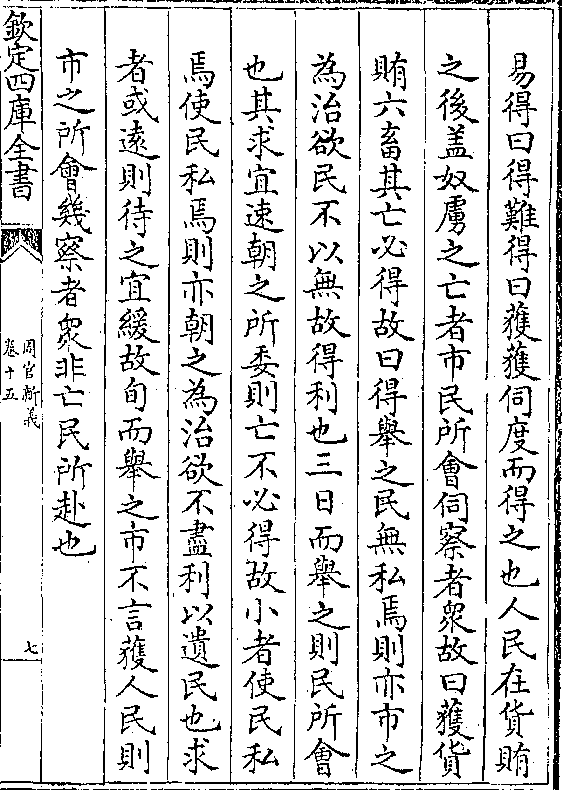 易得曰得難得曰獲獲伺度而得之也人民在貨賄
之後盖奴虜之亡者市民所會伺察者衆故曰獲貨
賄六畜其亡必得故曰得舉之民無私焉則亦市之
為治欲民不以無故得利也三日而舉之則民所會
也其求宜速朝之所委則亡不必得故小者使民私
焉使民私焉則亦朝之為治欲不盡利以遺民也求
者或逺則待之宜緩故旬而舉之市不言獲人民則
市之所會幾察者衆非亡民所赴也
欽定四庫全書
周官新義
卷十五
七